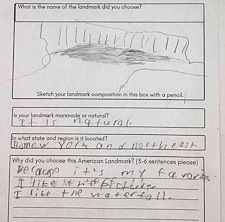 What is the name of the landmark did you choose?
Sketch your landmark composition in this box with a pencil.
Is your landmark manmade or natural?
It is natural.
In what state and region is it located?
new York and north east
Why did you choose this American Landmark? (3-6 sentences please)
Because it's my favorite
I like
I like the waterfall.